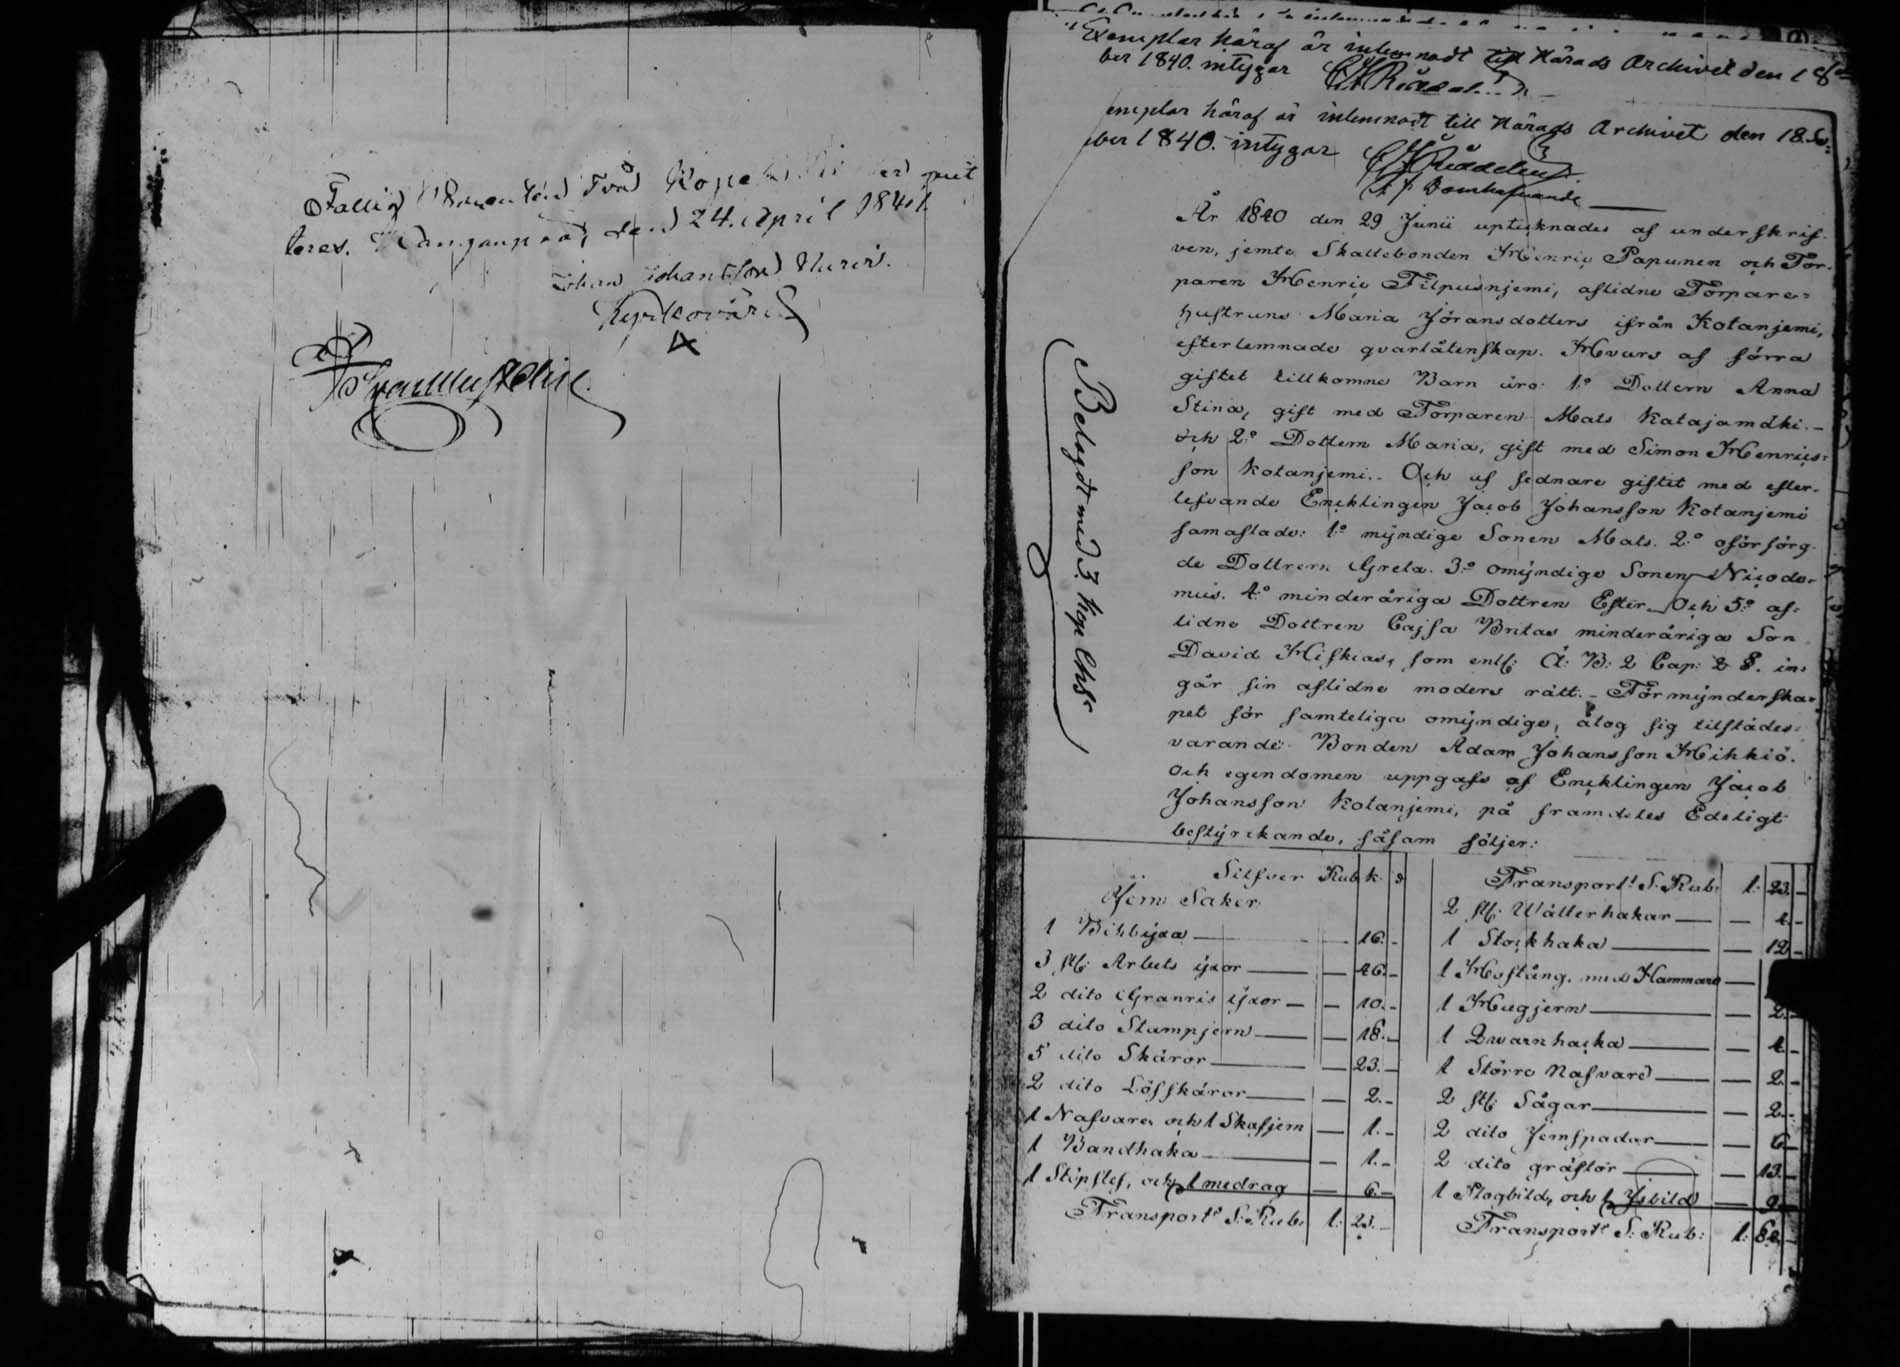 Fattig
teras. den 24. April 1841.
Johan Johansson
Exemplar häraf är inlemnadt till Härads Archivet den 18
ber 1840. intygar
emplar häraf är inlemnadt till Härads Archivet den 18.
ber 1840. intygar
År 1840 den 29 Junii uptecknades af underskrif-
ven, jemte Skattebonden Henric Papunen och Tor-
paren Henric Filpusnjemi, aflidne Torpare-
hustruns Maria Jöransdotters ifrån Kotanjemi,
efterlemnade qvarlåtenskap. Hvars af förra
giftet tillkomne Barn äro: 1:o Dottern Anna
Stina, gift med Torparen Mats Katajamäki.-
och 2:o Dottern Maria, gift med Simon Henrics-
son Kotanjemi.. Och af sednare giftet med efter-
lefvande Encklingen Jacob Johansson Kotanjemi
samaflade: 1:o myndige Sonen Mats. 2:o oförsörg-
de Dottrern Greta. 3:o omyndige Sonen Nicode-
mus. 4:o minderåriga Dottren Ester. Och 5:o af-
lidne Dottren Cajsa Britas minderåriga Son
David Hiskias, som enl: Ä: B: 2 Cap: 2 §. in-
går sin aflidne moders rätt. - Förmynderska-
pet för samteliga omyndige, åtog sig tillstädes-
varande Bonden Adam Johansson Hihkiö.
Och egendomen uppgafs af Encklingen Jacob
Johansson Kotanjemi, på framdeles Edeligt
bestyrckande, såsom följer:
Belagdt med 3. kop. Chsr
Silfver Rub. k.
Jern Saker
1 Bihlyxa — 16.-
3 st: Arbets yxor — 46.-
2 dito Granris yxor — 10.-
3 dito Stumpjern — 18.-
5 dito Skäror — 23.-
2 dito Löfskäror — 2.-
1 Nafvare och 1 Skafjern — 1.-
1 Bandhaka — 1.-
1 Stöpslef, och 1 medrag — 6.-
Transport S: Rub: 1: 23.-
Transport S: Rub: 1: 23.-
2 st: Wälterhakar — 4.-
1 Stockhaka — 12.-
1 Hoftång. med Hammare —
1 Hugjern — 2.-
1 Qwarnhacka — 4.-
1 Större Nafvare — 2.-
2 st: Sågar — 2.-
2 dito Jernspadar — 6.-
2 dito gräftor — 13.-
1 Plogbild, och 1 Isbild — 9.-
Transport S: Rub: 1: